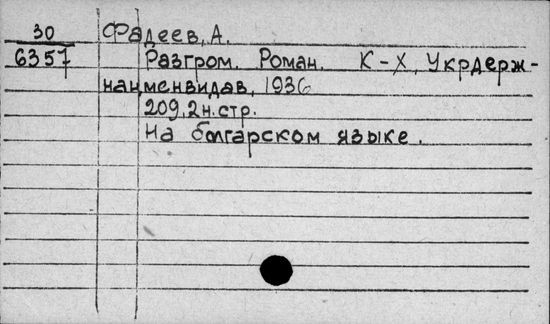 30
6357
Фадеев, А.
Разгром. Роман. К-Х, Укрдерж-
нацменвидав, 1936
209, 2 н. стр.
На болгарском языке.